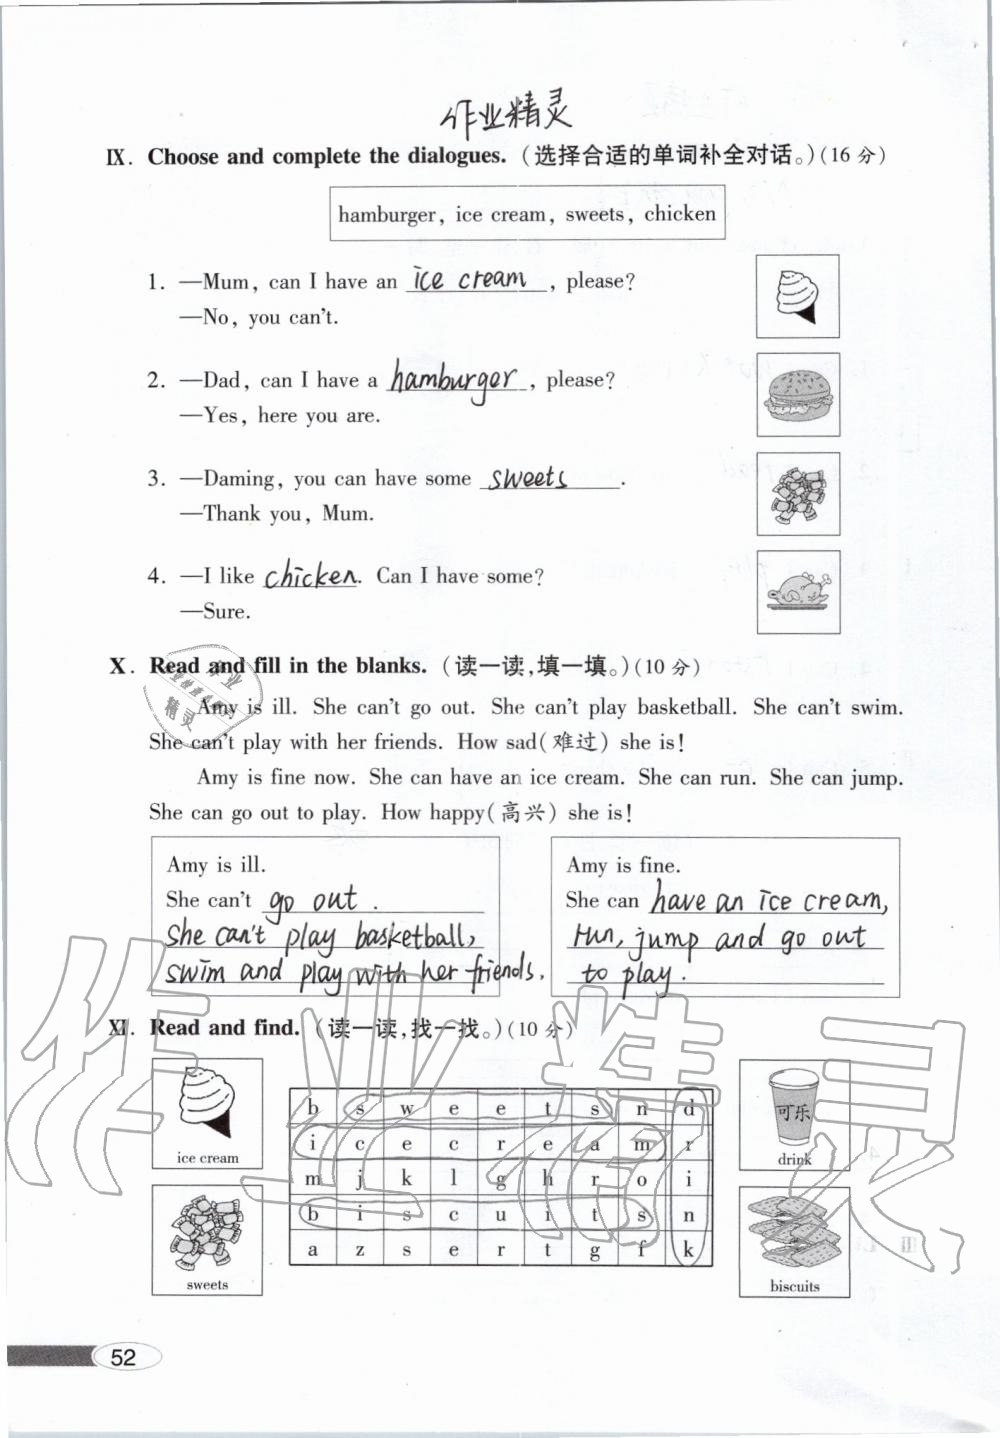 作业精灵
Ⅸ. Choose and complete the dialogues. (选择合适的单词补全对话。)(16 分)
hamburger, ice cream, sweets, chicken
1. —Mum, can I have an ice cream, please?
—No, you can't.
2. —Dad, can I have a hamburger, please?
—Yes, here you are.
3. —Daming, you can have some sweets.
—Thank you, Mum.
4. —I like chicken. Can I have some?
—Sure.
Ⅹ. Read and fill in the blanks. (读一读,填一填。)(10 分)
Amy is ill. She can't go out. She can't play basketball. She can't swim.
She can't play with her friends. How sad(难过) she is!
Amy is fine now. She can have an ice cream. She can run. She can jump.
She can go out to play. How happy(高兴) she is!
Amy is ill.
She can't go out.
She can't play basketball,
swim and play with her friends.
Amy is fine.
She can have an ice cream,
run, jump and go out
to play.
Ⅺ. Read and find. (读一读,找一找。)(10 分)
ice cream
sweets
b s w e e t s n d
i c e c r e a m r
m j k l g h r o i
b i s c u i t s n
a z s e r t g f k
可乐
drink
biscuits
52
作业精灵